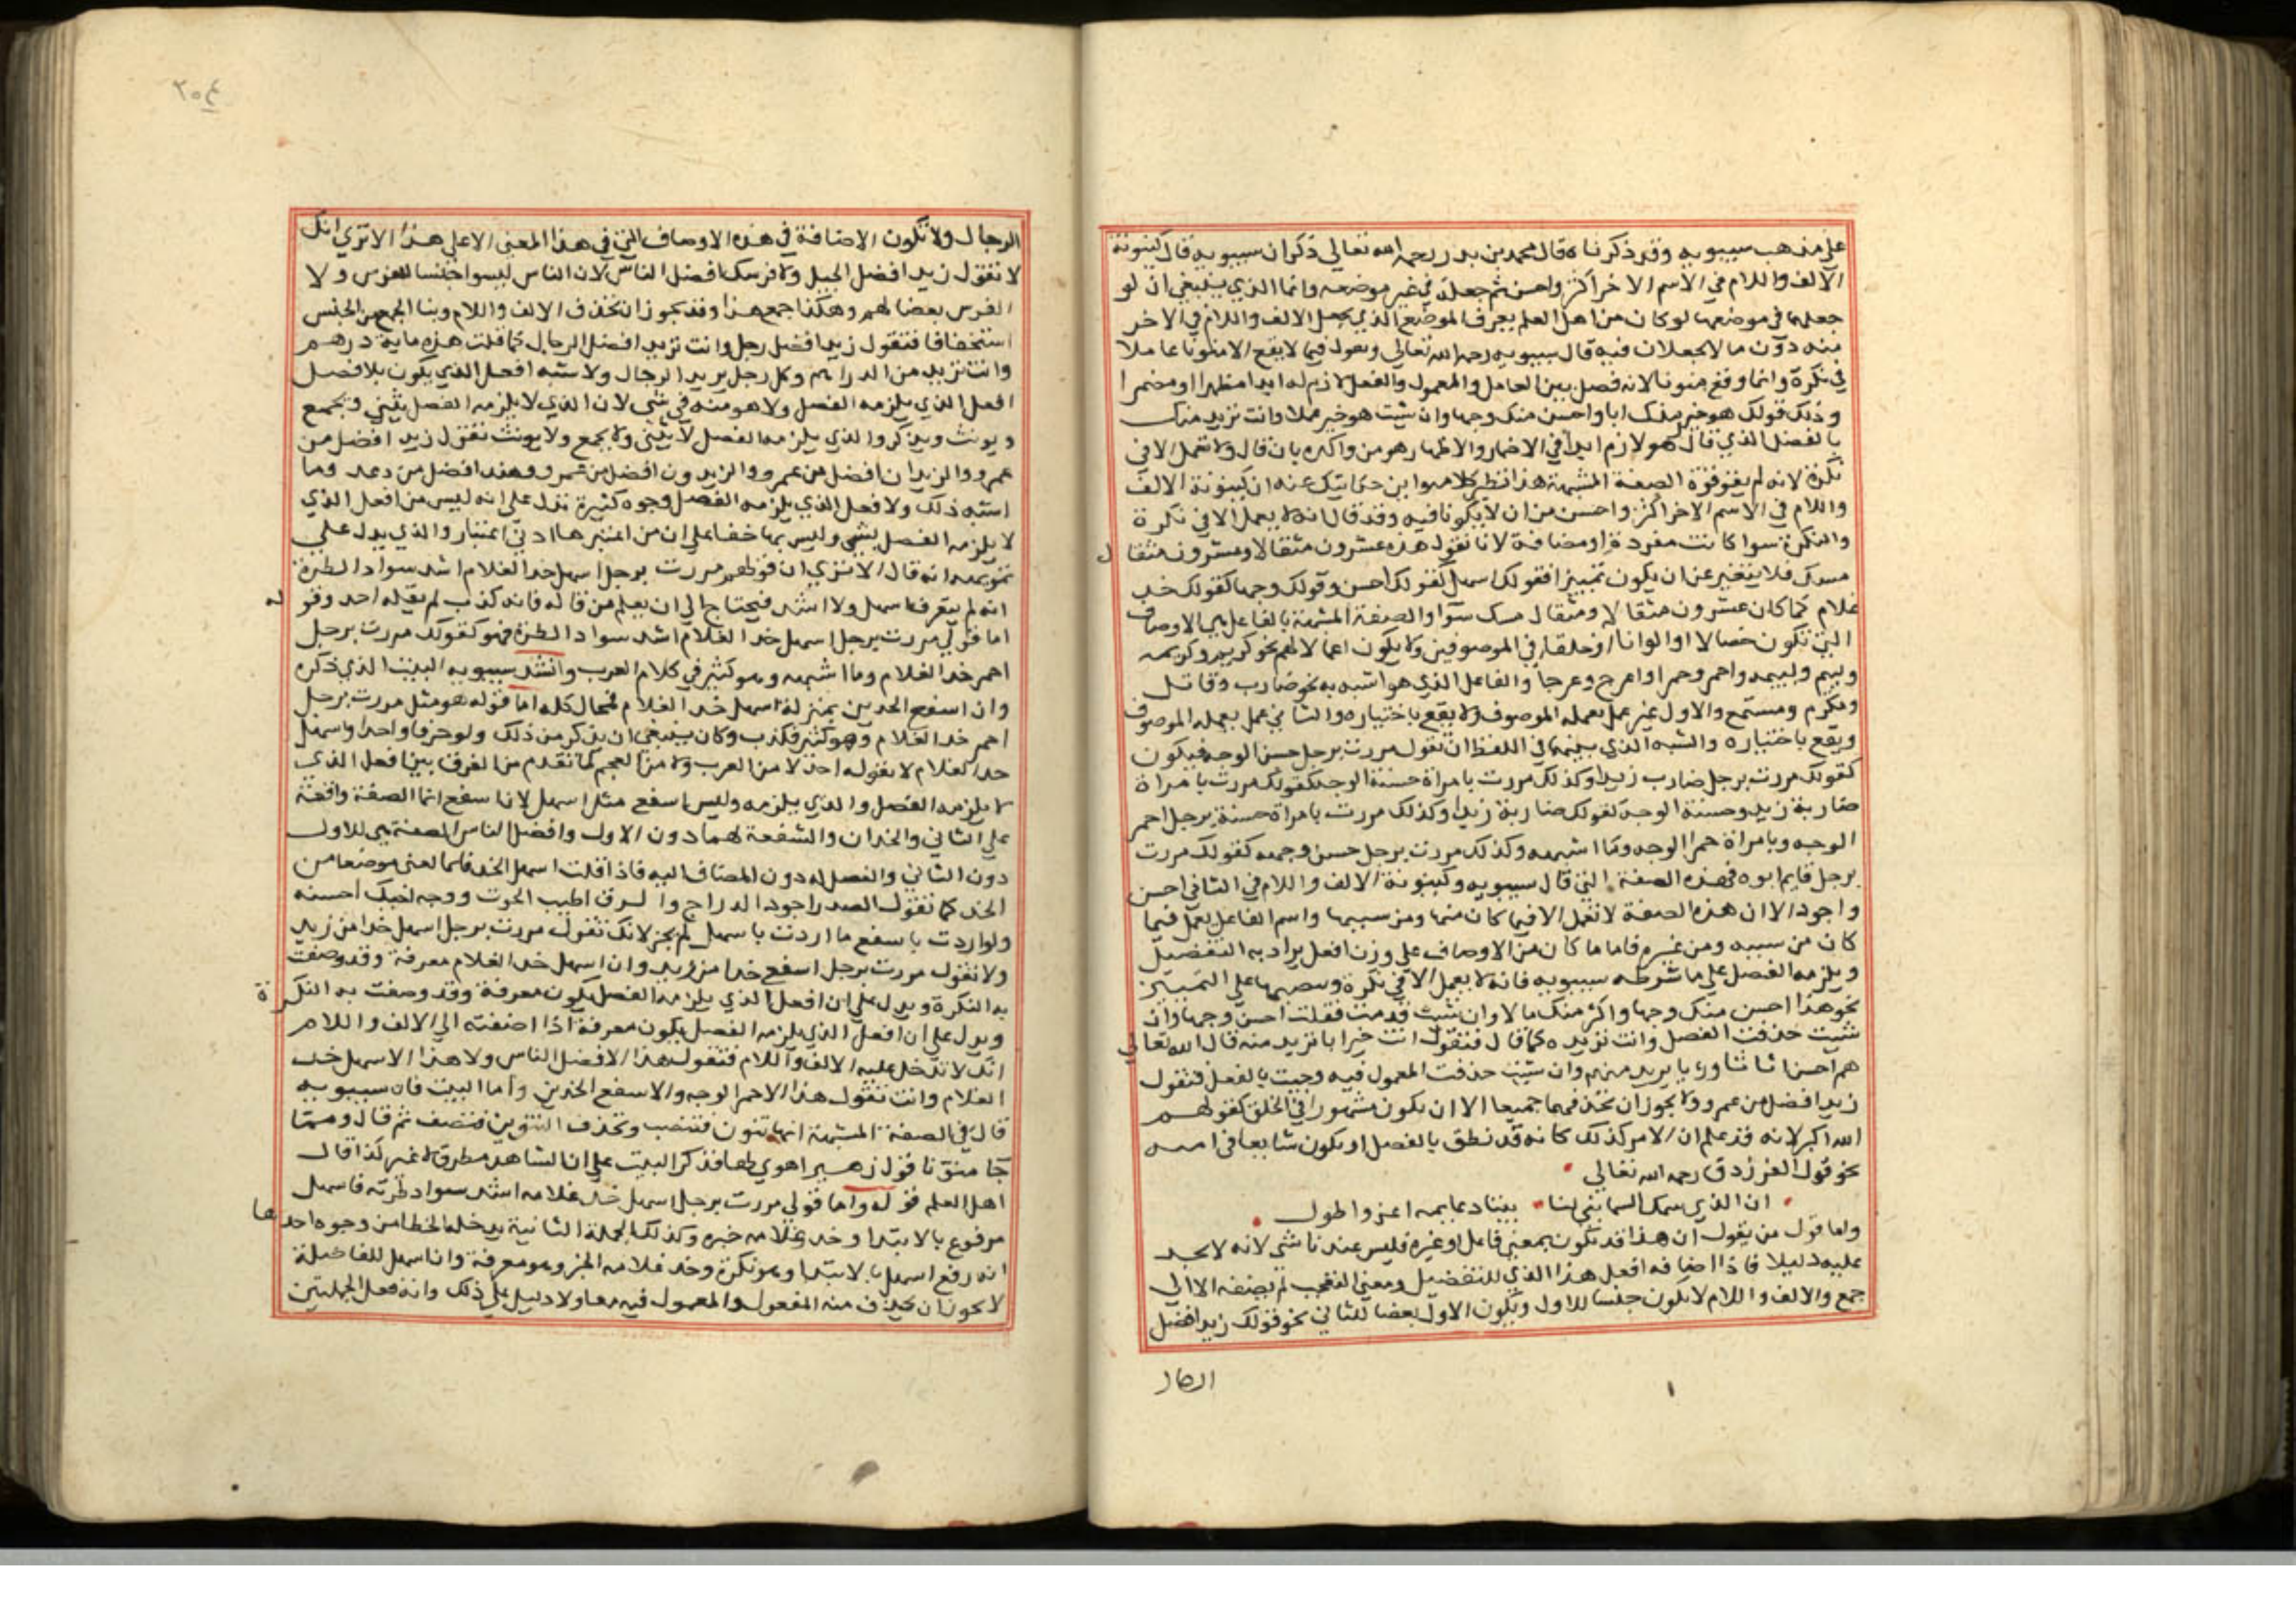 على مذهب سيبويه وقد ذكرناه قال محمد بن بدر رحمه الله تعالى ذكر ان سيبويه قال كينونة
الالف واللام في الاسم الاخر اكثر واحسن ثم جعله في غير موضعه وانما الذي ينبغي ان لو
جعلها في موضعها لو كان من اهل العلم يعرف الموضع الذي يجعل الالف واللام في الاخر
منه دون ما لا يجعلان فيه قال سيبويه رحمه الله تعالى ونعول فيما لا يقع الا منونا عاملا
في نكرة وانما وقع منونا لانه فصل بين العامل والمعمول والفصل لازم له ابدا مظهرا او مضمرا
وذلك قولك هو خير منك ابا واحسن منك وجها وان شيت هو خير عملا وانت تريد منك
بالفصل الذي قال هو لازم ابدا في الاضمار والاظهار هو من واكده بان قال ولا تعمل الا في
نكرة لانه لم يقو قوة الصفة المشبهة هذا نظر كلامه وابن حتى يتك عنه ان كينونة الالف
واللام في الاسم الاخر اكثر واحسن من ان لا يكونا فيه وقد قال انه لا يعمل الا في نكرة
والنكرة سوا كانت مفردة او مضافة لانا نقول هذه عشرون مثقالا وعشرون مثقال
مسك فلا يتغير عن ان يكون تمييزا فقولك اسهل كقولك احسن وقولك وجها كقولك خد
غلام كما كان عشرون مثقالا ومثقال مسك سوا والصفة المشبهة بالفاعل هي الاوصاف
التي تكون خصالا او الوانا او خلقا في الموصوفين ولا يكون اعمالا لهم نحو كريم وكريمه
وليم ولييمه واحمر وحمرا واعرج وعرجا والفاعل الذي هو اشبه به نحو ضارب وقاتل
ومكرم ومستمع والاول غير عمل يعمله الموصوف ولا يقع باختياره والثاني عمل يعمله الموصوف
ويقع باختياره والشبه الذي بينهما في اللفظ ان تقول مررت برجل حسن الوجه فيكون
كقولك مررت برجل ضارب زيدا وكذلك مررت بامراة حسنة الوجه كقولك مررت بامراة
ضاربة زيد وحسنة الوجه كقولك ضاربة زيدا وكذلك مررت بامراة حسنة برجل احمر
الوجه وبامراة حمرا الوجه وما اشبهه وكذلك مررت برجل حسن وجهه كقولك مررت
برجل قايم ابوه فهذه الصفة التي قال سيبويه وكينونة الالف واللام في الثاني احسن
واجود الا ان هذه الصفة لا تعمل الا فيما كان منها ومن سببها واسم الفاعل يعمل فيما
كان من سببه ومن غيره فاما ما كان من الاوصاف على وزن افعل يراد به التفضيل
ويلزمه الفصل على ما شرطه سيبويه فانه لا يعمل الا في نكرة وينصبها على التمييز
نحو هذا احسن منك وجها واكثر منك مالا وان شيت قدمت فقلت احسن وجها وان
شيت حذفت الفصل وانت تريده كما قال فتقول انت خير ابا تريد منه قال الله تعالى
هم احسن اثاثا وريا يريد منهم وان شيت حذفت المعمول فيه وجيت بالفصل فتقول
زيد افضل من عمرو ولا يجوز ان تحذفهما جميعا الا ان يكون مشهورا في الخلق كقولهم
الله اكبر لانه قد علم ان الامر كذلك كانه قد نطق بالفصل او يكون شايعا في امـه
نحو قول الفرزدق رحمه الله تعالى
ان الذي سمك السما بنى لنا بيتا دعايمه اعز واطول
واما قول من يقول ان هذا قد تكون بمعنى فاعل او غيره فليس عندنا شي لانه لا يجد
عليه دليلا فاذا اضافه افعل هذا الذي للتفضيل ومعنى التعجب لم يضفه الا الى
جمع والالف واللام لا يكون جنسا للاول ويكون الاول بعضا للثاني نحو قولك زيد افضل
الرجال
٣٥٤
الرجال ولا تكون الاضافة في هذه الاوصاف التي في هذا المعنى الا على هذا الا ترى انك
لا تقول زيد افضل الجبل ولا فرسك افضل الناس لان الناس ليسوا جنسا للفرس ولا
الفرس بعضا لهم وهكذا جمع هذا وقد يجوز ان تحذف الالف واللام وبنا الجمع من الجنس
استخفافا فتقول زيد افضل رجل وانت تريد افضل الرجال كما قلت هذه ماية درهم
وانت تريد من الدراهم وكل رجل يريد الرجال ولا شبه افعل الذي يكون بلا فصل
افعل الذي يلزمه الفصل ولا هو منه في شي لان الذي لا يلزمه الفصل يثنى ويجمع
ويونث ويذكر والذي يلزمه الفصل لا يثنى ولا يجمع ولا يونث تقول زيد افضل من
عمرو والزيدان افضل من عمرو والزيدون افضل من عمرو وهند افضل من دعد وما
اشبه ذلك ولا فعل الذي يلزمه الفصل وجوه كثيرة تدل على انه ليس من افعل الذي
لا يلزمه الفصل بشي وليس بها خفا على ان من اعتبرها ادنى اعتبار والذي يدل على
تمويهه انه قال الا ترى ان قولهم مررت برجل اسهل خد الغلام اشد سواد الطرة
انه لم يتعرف اسهل ولا اشد فيحتاج الى ان يعلم من قاله فانه كذب لم يقله احد وقوله
اما قولي مررت برجل اسهل خد الغلام اشد سواد الطرة فهو كقولك مررت برجل
احمر خد الغلام وما اشبهه وهو كثير في كلام العرب وانشد سيبويه البيت الذي ذكره
وان اسفع الخدين بمنزلة اسهل خد الغلام فمحال كله اما قوله هو مثل مررت برجل
احمر خد الغلام وهو كثير فكذب وكان ينبغي ان يذكر من ذلك ولو حرفا واحدا واسهل
خد الغلام لا يقوله احد لا من العرب ولا من العجم كما تقدم من الفرق بين افعل الذي
لا يلزمه الفصل والذي يلزمه وليس اسفع مثل اسهل لان اسفع انما الصفة واقعة
على الثاني والخدان والشفعة لهما دون الاول وافضل الناس الصفة هي للاول
دون الثاني والفصل له دون المضاف اليه فاذا قلت اسهل الخد فانما لعنى موضعا من
الخد كما تقول الصدر اجود الدراج والـرق اطيب الحوت ووجه اخيك احسنه
ولو اردت باسفع ما اردت باسهل لم يجز لانك تقول مررت برجل اسهل خدا من زيد
ولا تقول مررت برجل اسفع خدا من زيد وان اسهل خد الغلام معرفة وقد وصفت
به النكرة ويدل على ان افعل الذي يلزمه الفصل يكون معرفة وقد وصفت به النكرة
ويدل على ان افعل الذي يلزمه الفصل يكون معرفة اذا اضفته الى الالف واللام
انك لا تدخل عليه الالف واللام فتقول هذا الافضل الناس ولا هذا الاسهل خد
الغلام وانت تقول هذا الاحمر الوجه والاسفع الخدين واما البيت فان سيبويه
قال في الصفة المشبهة انها تنون فتنصب وتحذف التنوين فتصف ثم قال ومما
جا منونا قول زهير اهوى لها فذكر البيت على ان الشاهد مطرق لا غير كذا قال
اهل العلم قوله واما قولي مررت برجل اسهل خد غلامه اشد سواد طرته فاسهل
مرفوع بالابتدا وخد غلامه خبره وكذلك الجملة الثانية يدخله الخطا من وجوه احدها
انه رفع اسهل بالابتدا وهو نكرة وخد غلامه الخبر وهو معرفة وان اسهل للفاضلة
لا يجوز ان يحذف منه المفعول والمعمول فيه معا ولا دليل على ذلك وانه فعل الجملتين